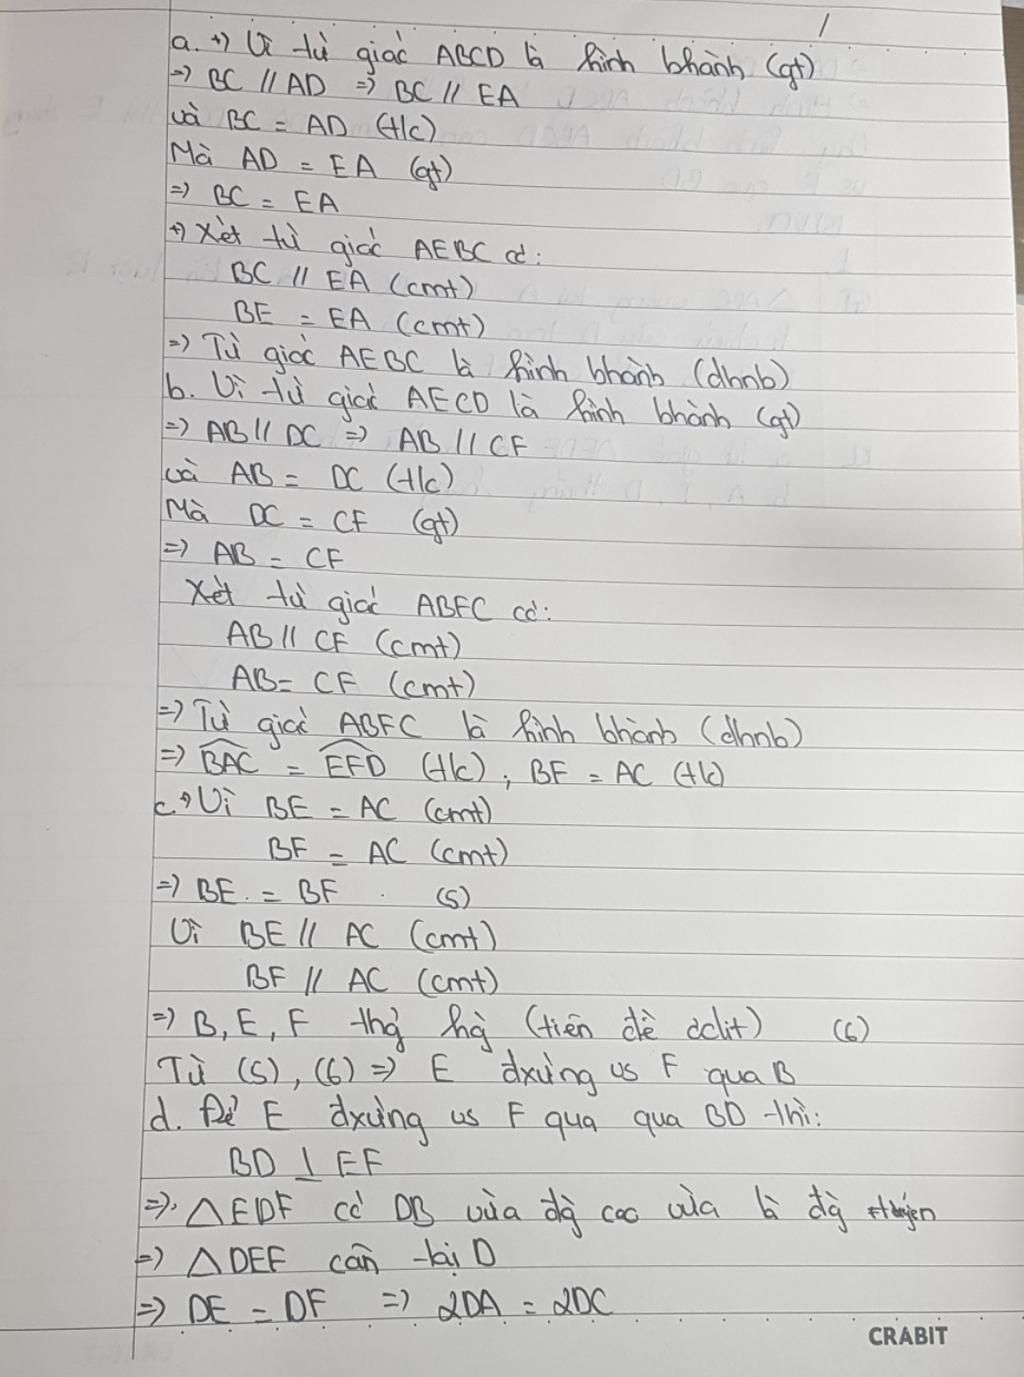 a. +) Vì tứ giác ABCD là hình bhành (gt)
=> BC // AD => BC // EA
và BC = AD (t/c)
Mà AD = EA (gt)
=> BC = EA
+) Xét tứ giác AEBC có:
BC // EA (cmt)
BE = EA (cmt)
=> Tứ giác AEBC là hình bhành (dhnb)
b. Vì tứ giác AECD là hình bhành (gt)
=> AB // DC => AB // CF
và AB = DC (t/c)
Mà DC = CF (gt)
=> AB = CF
Xét tứ giác ABFC có:
AB // CF (cmt)
AB = CF (cmt)
=> Tứ giác ABFC là hình bhành (dhnb)
=> \widehat{BAC} = \widehat{EFD} (t/c), BF = AC (t/c)
c. +) Vì BE = AC (cmt)
BF = AC (cmt)
=> BE = BF (5)
Vì BE // AC (cmt)
BF // AC (cmt)
=> B, E, F thg̉ hg̀ (tiên đề ơclit) (6)
Từ (5), (6) => E đxứng vs F qua B
d. Để E đxứng vs F qua qua BD thì:
BD ⊥ EF
=> △EDF có DB vừa đg̀ cao vừa là đg̀ tuyến
=> △DEF cân tại D
=> DE = DF => 2DA = 2DC
CRABIT